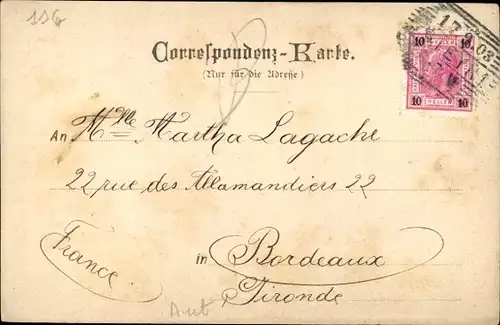 116
17 9 03
Correspondenz-Karte.
(Nur für die Adresse)
10 10
HELLER
10 10
An Mlle Martha Lagache
22 rue des Allamandiers 22
France
in Bordeaux
Gironde